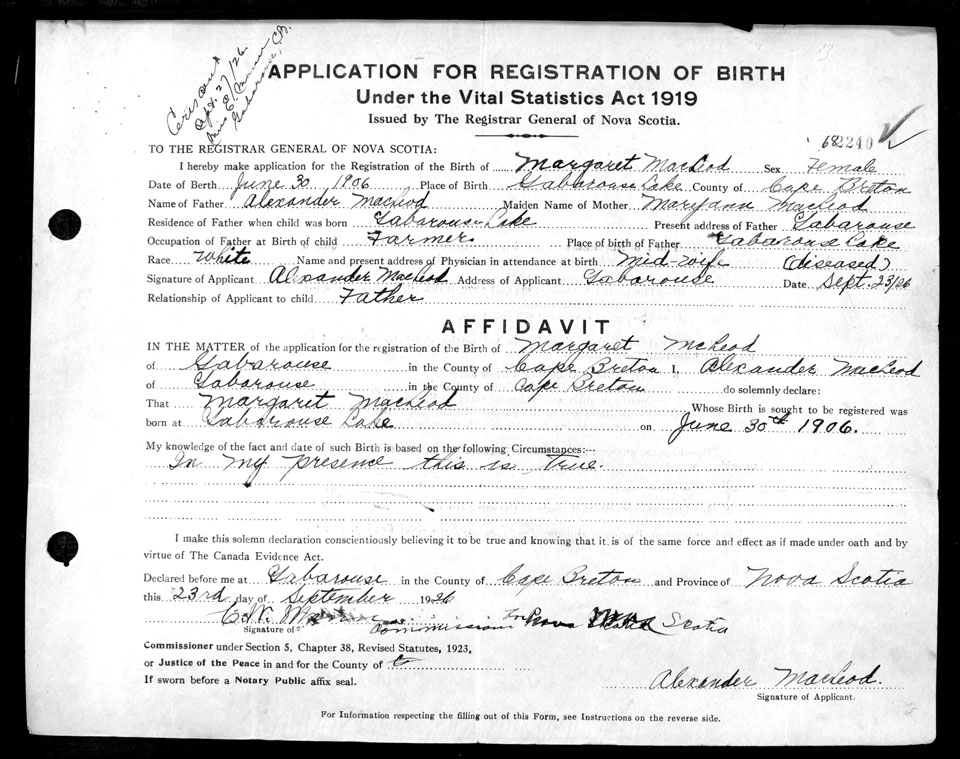 Cert sent
Sept. 27/26.
Miss E. Mann
Gabarouse, C.B.
APPLICATION FOR REGISTRATION OF BIRTH
Under the Vital Statistics Act 1919
Issued by The Registrar General of Nova Scotia.
682240
TO THE REGISTRAR GENERAL OF NOVA SCOTIA:
I hereby make application for the Registration of the Birth of Margaret MacLeod Sex Female
Date of Birth June 30 1906 Place of Birth Gabarouse Lake County of Cape Breton
Name of Father Alexander MacLeod Maiden Name of Mother Maryann MacLeod
Residence of Father when child was born Gabarouse Lake Present address of Father Gabarouse
Occupation of Father at Birth of child Farmer Place of birth of Father Gabarouse Lake
Race White Name and present address of Physician in attendance at birth Mid-wife (diseased)
Signature of Applicant Alexander MacLeod Address of Applicant Gabarouse Date Sept. 23/26
Relationship of Applicant to child Father
AFFIDAVIT
IN THE MATTER of the application for the registration of the Birth of Margaret McLeod
of Gabarouse in the County of Cape Breton I, Alexander MacLeod
of Gabarouse in the County of Cape Breton do solemnly declare:
That Margaret MacLeod Whose Birth is sought to be registered was
born at Gabarouse Lake on June 30th 1906.
My knowledge of the fact and date of such Birth is based on the following Circumstances:
In my presence this is true.
I make this solemn declaration conscientiously believing it to be true and knowing that it is of the same force and effect as if made under oath and by
virtue of The Canada Evidence Act.
Declared before me at Gabarouse in the County of Cape Breton and Province of Nova Scotia
this 23rd day of September 1926
C.W.
Signature of Commission In Nova Scotia
Commissioner under Section 5, Chapter 38, Revised Statutes, 1923,
or Justice of the Peace in and for the County of
If sworn before a Notary Public affix seal.
Alexander MacLeod.
Signature of Applicant.
For Information respecting the filling out of this Form, see Instructions on the reverse side.